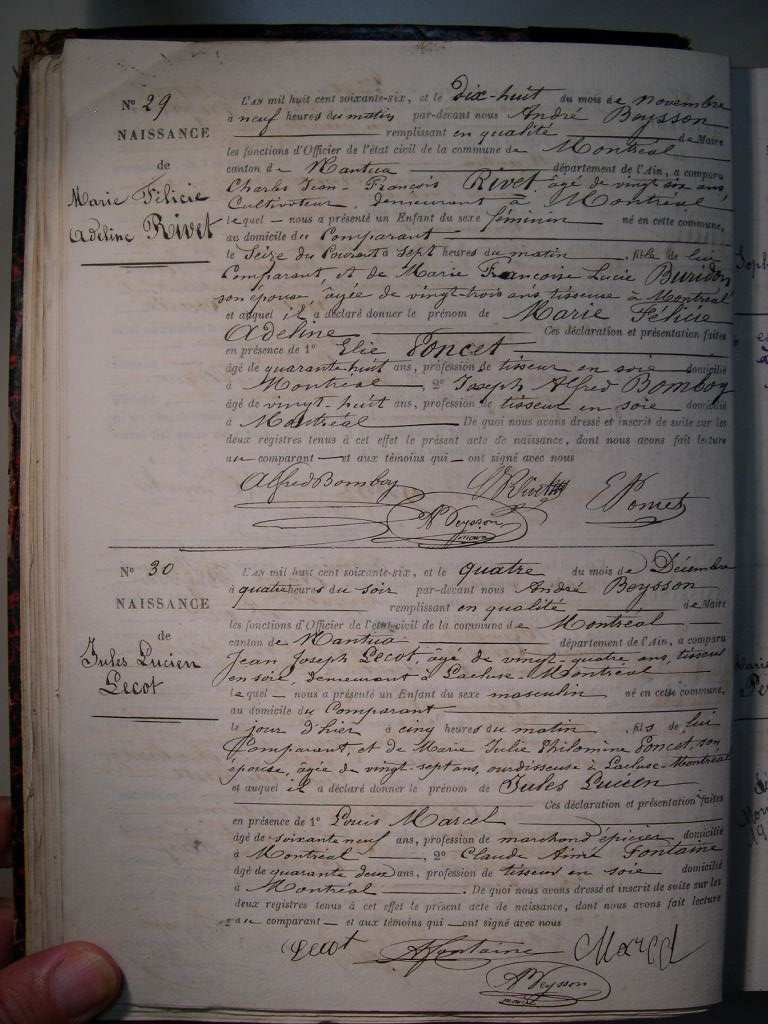 N° 29
NAISSANCE
de
Marie Félicie
Adeline Rivet
L'AN mil huit cent soixante-six, et le Dix-huit du mois de novembre
à neuf heures du matin par-devant nous André Beysson
remplissant en qualité de Maire
les fonctions d'Officier de l'état civil de la commune de Montréal
canton de Nantua département de l'Ain, a comparu
Charles Jean-François Rivet, âgé de vingt six ans,
Cultivateur, demeurant à Montréal
lequel nous a présenté un Enfant du sexe féminin né en cette commune,
au domicile du Comparant
le Seize du Courant à sept heures du matin fille de lui
Comparant, et de Marie Françoise Lucie Buridon
son épouse, âgée de vingt-trois ans tisseuse à Montréal
et auquel il a déclaré donner le prénom de Marie Félicie
Adeline Ces déclaration et présentation faites
en présence de 1° Elie Poncet
âgé de quarante-huit ans, profession de tisseur en soie domicilié
à Montréal 2° Joseph Alfred Bomboy
âgé de vingt-huit ans, profession de tisseur en soie domicilié
à Montréal De quoi nous avons dressé et inscrit de suite sur les
deux registres tenus à cet effet le présent acte de naissance, dont nous avons fait lecture
au comparant et aux témoins qui ont signé avec nous
Alfred Bomboy Rivet E Poncet
An Beysson
maire
N° 30
NAISSANCE
de
Jules Lucien
Lecot
L'AN mil huit cent soixante-six, et le quatre du mois de Décembre
à quatre heures du soir par-devant nous André Beysson
remplissant en qualité de Maire
les fonctions d'Officier de l'état civil de la commune de Montréal
canton de Nantua département de l'Ain, a comparu
Jean Joseph Lecot, âgé de vingt-quatre ans, tisseur
en soie, demeurant à Lacluse-Montréal
lequel nous a présenté un Enfant du sexe masculin né en cette commune,
au domicile du Comparant
le jour d'hier à cinq heures du matin fils de lui
Comparant, et de Marie Julie Philomine Poncet, son
épouse, âgée de vingt-sept ans, ourdisseuse à Lacluse-Montréal
et auquel il a déclaré donner le prénom de Jules Lucien
Ces déclaration et présentation faites
en présence de 1° Louis Marcel
âgé de soixante neuf ans, profession de marchand épicier domicilié
à Montréal 2° Claude Aimé Fontaine
âgé de quarante deux ans, profession de tisseur en soie domicilié
à Montréal De quoi nous avons dressé et inscrit de suite sur les
deux registres tenus à cet effet le présent acte de naissance, dont nous avons fait lecture
au comparant et aux témoins qui ont signé avec nous
Lecot A Fontaine Marcel
An Beysson
maire